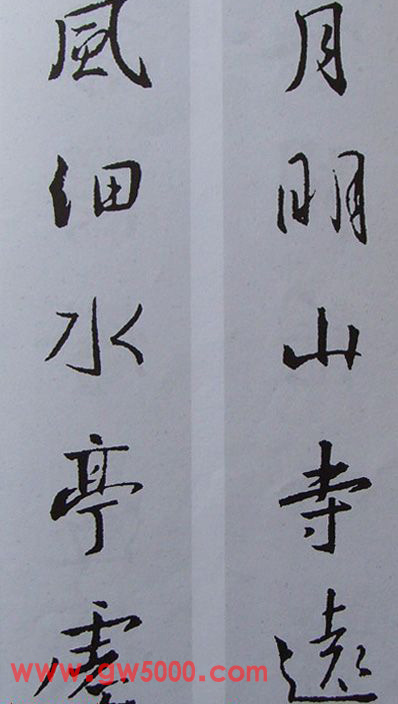 月明山寺遠
風細水亭虛
www.gw5000.com